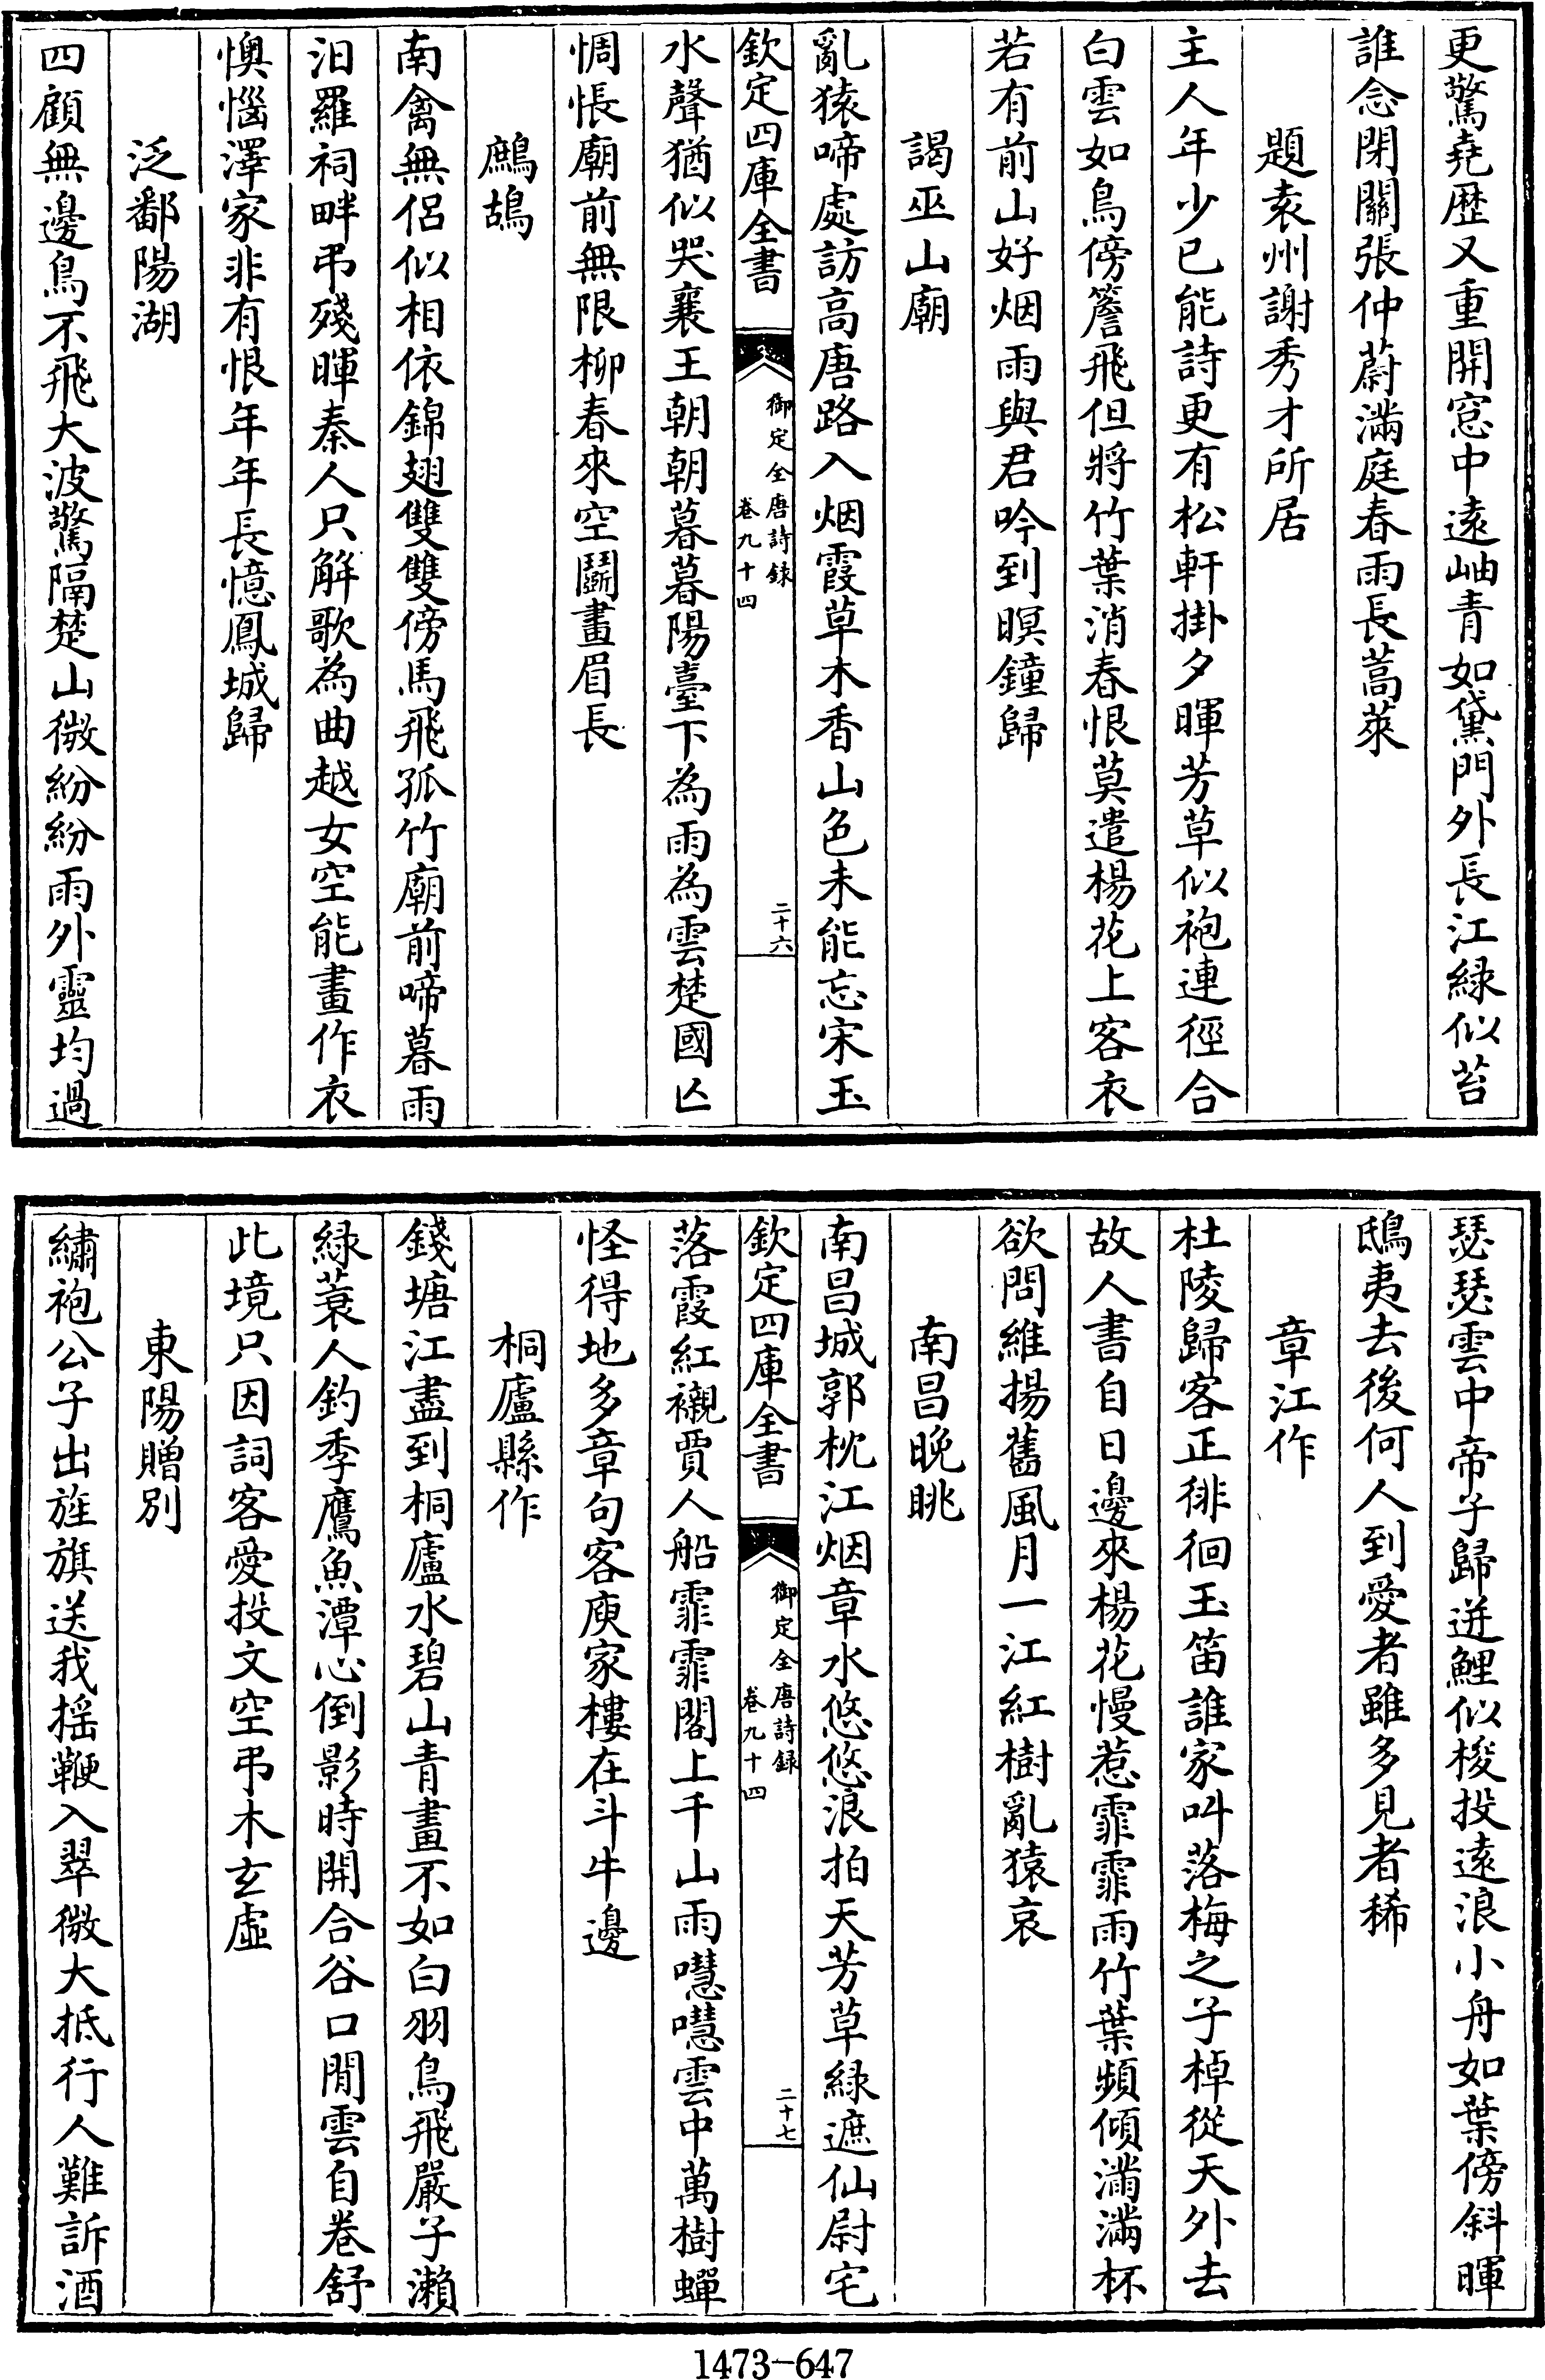 更驚堯歴又重開窓中遠岫青如黛門外長江緑似苔
誰念閉關張仲蔚滿庭春雨長蒿萊
題袁州謝秀才所居
主人年少已能詩更有松軒掛夕暉芳草似袍連徑合
白雲如鳥傍簷飛但將竹葉消春恨莫遣楊花上客衣
若有前山好烟雨與君吟到暝鐘歸
謁巫山廟
亂猿啼處訪高唐路入烟霞草木香山色未能忘宋玉
欽定四庫全書
御定全唐詩録
卷九十四
二十六
水聲猶似哭襄王朝朝暮暮陽臺下為雨為雲楚國亾
惆悵廟前無限柳春來空鬭畫眉長
鷓鴣
南禽無侣似相依錦翅雙雙傍馬飛孤竹廟前啼暮雨
汨羅祠畔弔殘暉秦人只解歌為曲越女空能畫作衣
懊惱澤家非有恨年年長憶鳳城歸
泛鄱陽湖
四顧無邊鳥不飛大波驚隔楚山微紛紛雨外靈均過
瑟瑟雲中帝子歸迸鯉似梭投遠浪小舟如葉傍斜暉
鴟夷去後何人到愛者雖多見者稀
章江作
杜陵歸客正徘徊玉笛誰家叫落梅之子棹從天外去
故人書自日邊來楊花慢惹霏霏雨竹葉頻傾滿滿杯
欲問維揚舊風月一江紅樹亂猿哀
南昌晚眺
南昌城郭枕江烟章水悠悠浪拍天芳草緑遮仙尉宅
欽定四庫全書
御定全唐詩録
卷九十四
二十七
落霞紅襯賈人船霏霏閣上千山雨嘒嘒雲中萬樹蟬
怪得地多章句客庾家樓在斗牛邊
桐廬縣作
錢塘江盡到桐廬水碧山青畫不如白羽鳥飛嚴子瀨
緑蓑人釣季鷹魚潭心倒影時開合谷口閒雲自卷舒
此境只因詞客愛投文空弔木玄虛
東陽贈別
繡袍公子出旌旗送我揺鞭入翠微大抵行人難訴酒
1473-647